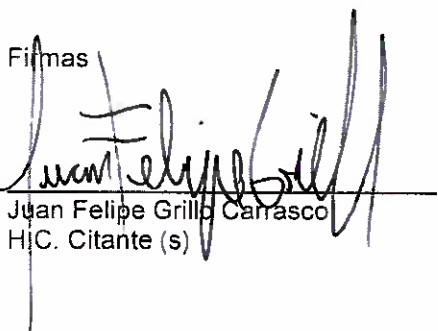 Firmas
Juan Felipe Grillo
Juan Felipe Grillo Carrasco
H.C. Citante (s)